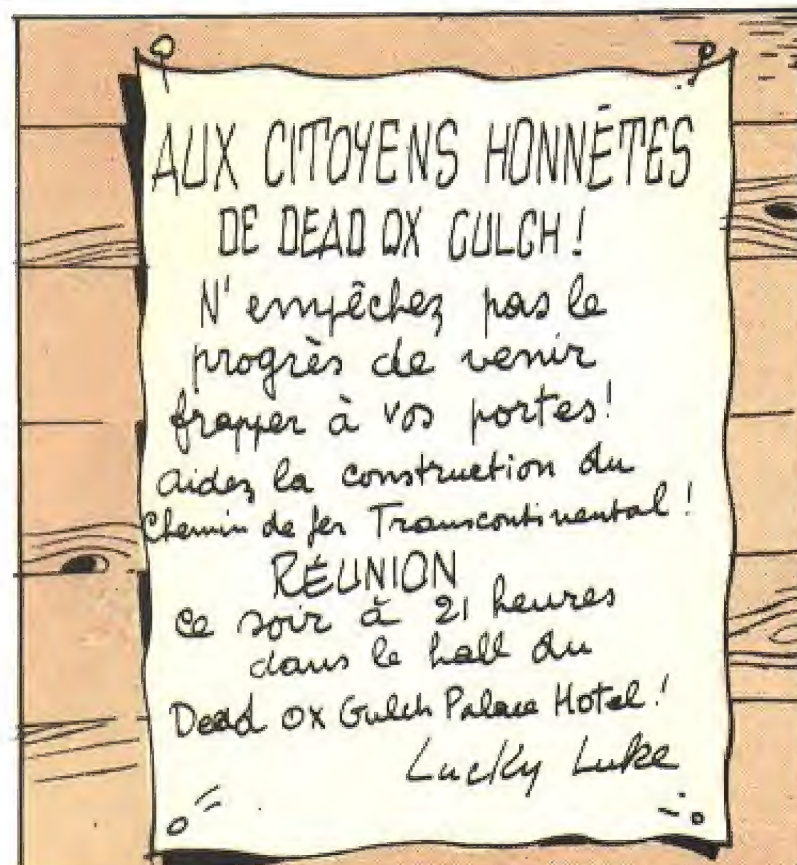 AUX CITOYENS HONNÊTES
DE DEAD OX GULCH !
N'empêchez pas le
progrès de venir
frapper à vos portes !
aidez la construction du
Chemin de fer Transcontinental !
RÉUNION
ce soir à 21 heures
dans le hall du
Dead Ox Gulch Palace Hotel !
Lucky Luke